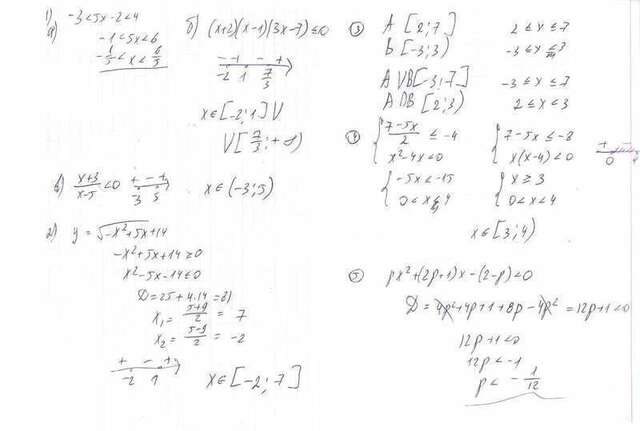 1)
а) -3<5x-2<4
-1<5x<6
-1/5<x<6/5
б) (x+2)(x-1)(3x-7)≤0
- + - +
-2 1 7/3
x∈[-2;1]V
V[7/3;+∞)
в) x+3/x-5<0 + - +
-3 5
x∈(-3;5)
2) y=√-x²+5x+14
-x²+5x+14≥0
x²-5x-14≤0
D=25+4.14=81
x₁=5+9/2=7
x₂=5-9/2=-2
+ - +
-2 7
x∈[-2;7]
③ A [2;7] 2≤x≤7
Б [-3;3) -3≤x≤3
AVB[-3;7] -3≤x≤7
AПB [2;3) 2≤x<3
④ {7-5x/2≤-4 {7-5x≤-8
x²-4x<0 x(x-4)<0 + -
0 4
{-5x≤-15 {x≥3
0<x<4 0<x<4
x∈[3;4)
⑤ px²+(2p+1)x-(2-p)<0
D=4p²+4p+1+8p-4p²=12p+1<0
12p+1<0
12p<-1
p<-1/12